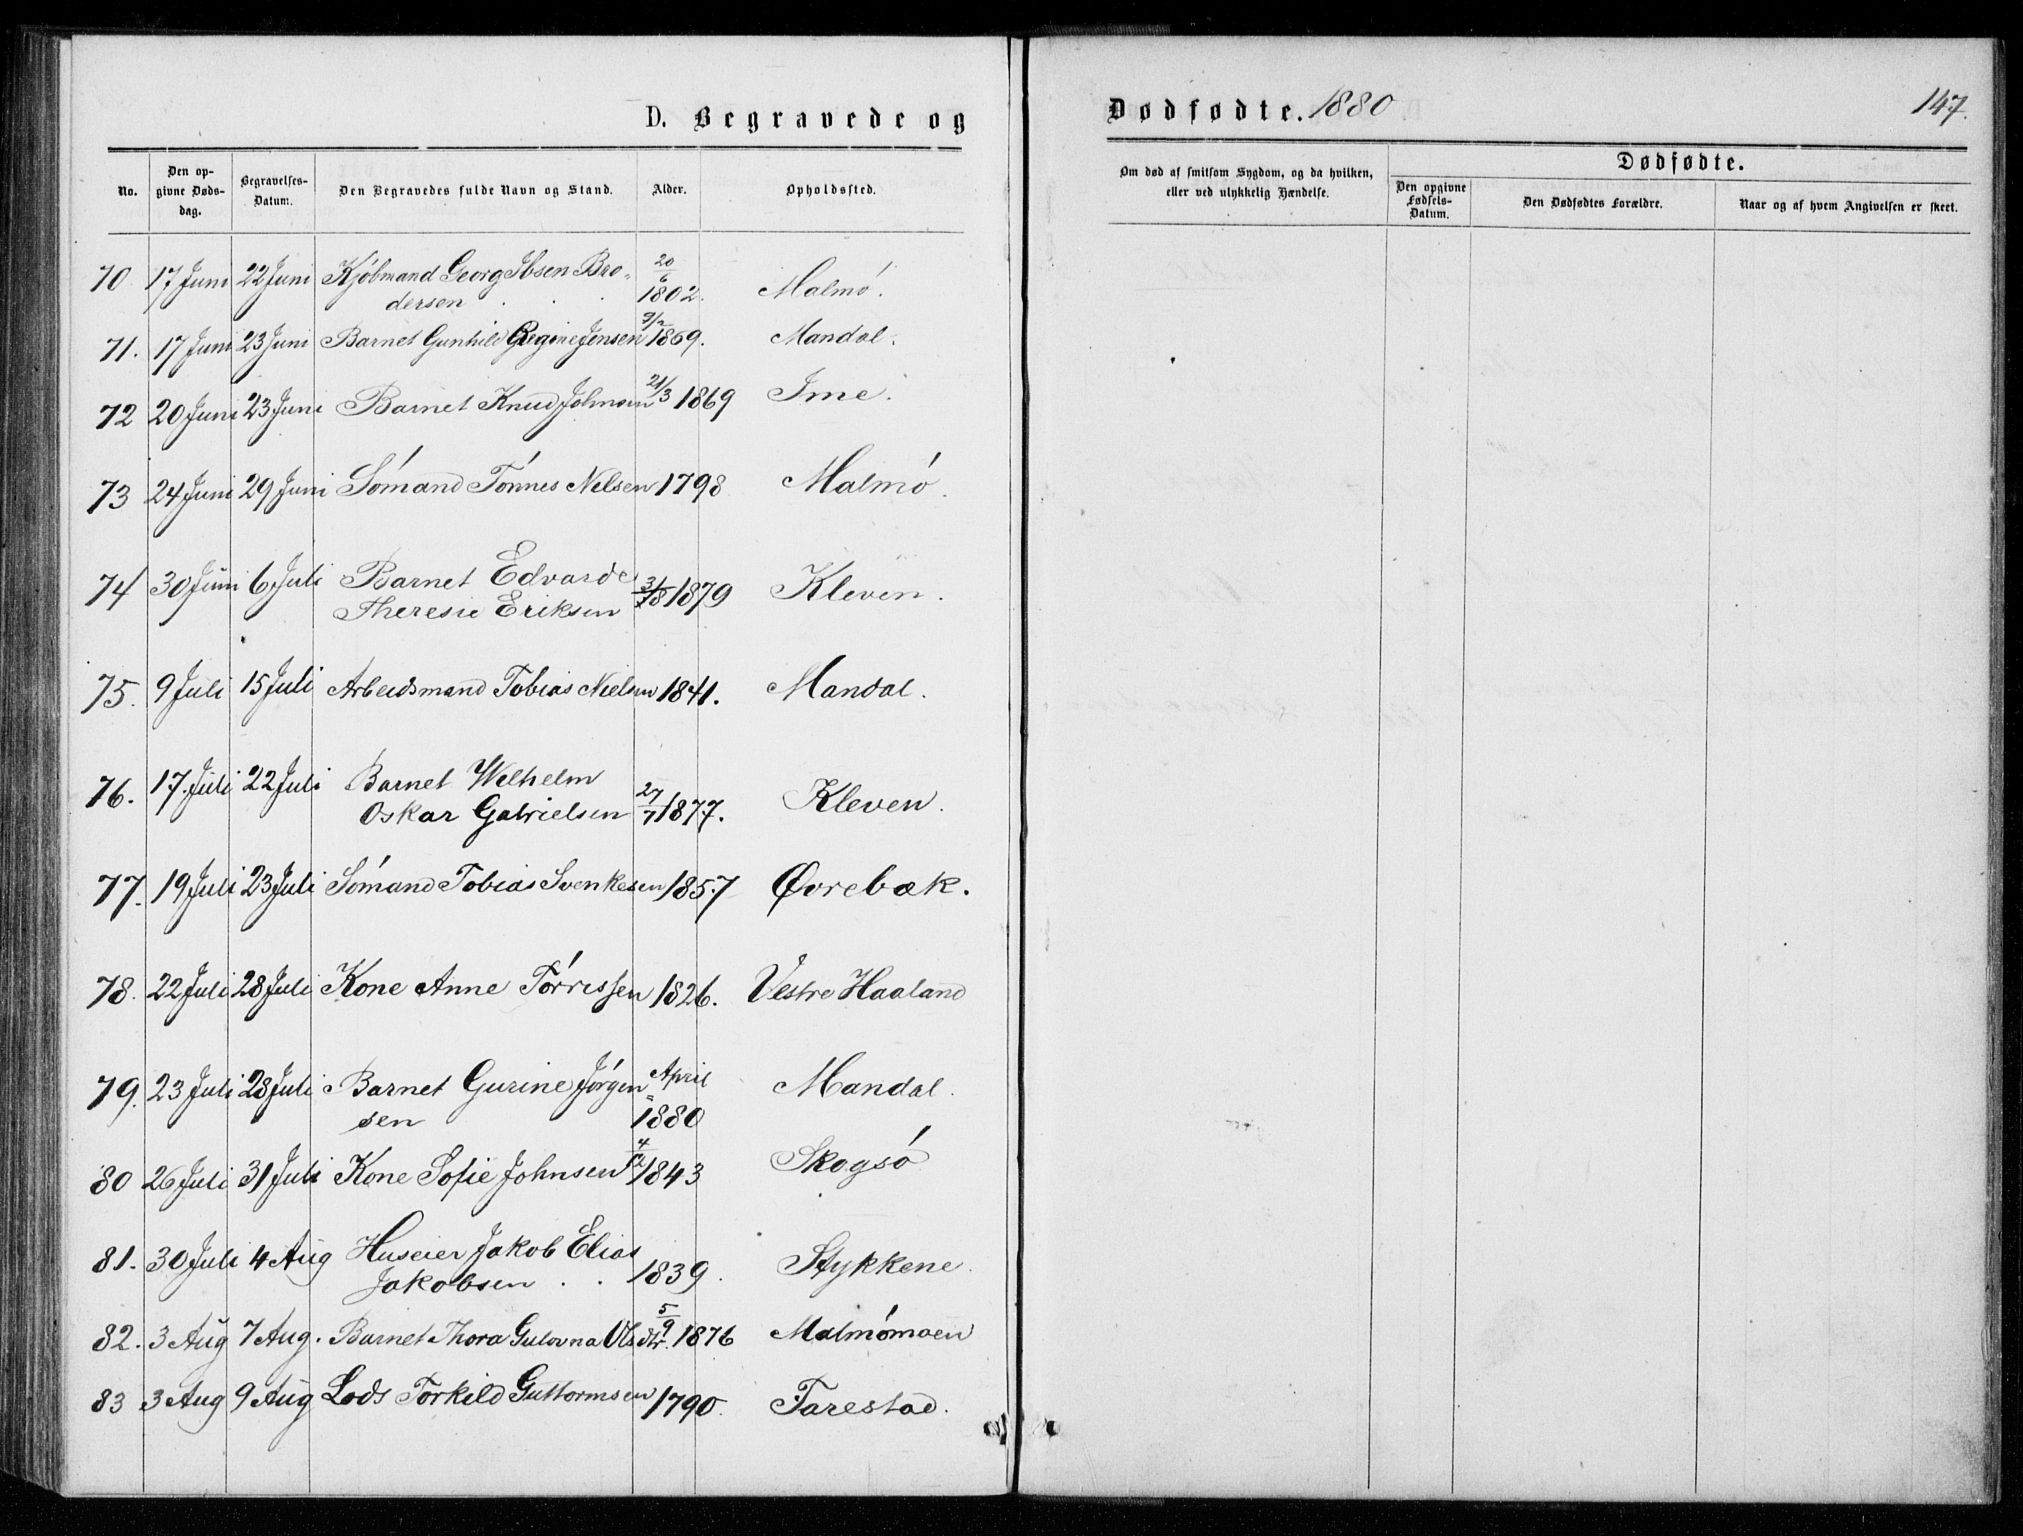 D. Begravede og
Dødfødte. 1880
147.
No.
Den opgivne Dødsdag.
Begravelses-Datum.
Den Begravedes fulde Navn og Stand.
Alder.
Opholdssted.
Om død af smitsom Sygdom, og da hvilken, eller ved ulykkelig Hændelse.
Dødfødte.
Den opgivne Fødsels-Datum.
Den Dødfødtes Forældre.
Naar og af hvem Angivelsen er skeet.
70 17 Juni 22 Juni Kjøbmand Georg Ibsen Bro- 20/6
dersen 1802. Malmø.
71. 17 Juni 23 Juni Barnet Gunhild Regine Jensen 1869. Mandal.
72 20 Juni 23 Juni Barnet Knud Johnsen 21/3 1869 Ime.
73 24 Juni 29 Juni Sømand Tønnes Nilsen 1798 Malmø.
74 30 Juni 6 Juli Barnet Edvarde
Theresie Eriksen 1879 Kleven.
75. 9 Juli 15 Juli Arbeidsmand Tobias Nielsen 1841. Mandal.
76. 17. Juli 22 Juli Barnet Wilhelm
Oskar Gabrielsen 27/7 1877. Kleven.
77. 19 Juli 23 Juli Sømand Tobias Svenkesen 1857 Øvrebæk.
78. 22 Juli 28 Juli Kone Anne Tørrissen 1826. Vestre Haaland
79. 23 Juli 28 Juli Barnet Gurine Jørgen- April Mandal.
sen 1880
80 26 Juli 31 Juli Kone Sofie Johnsen 4/12 1843 Skogsø
81. 30 Juli 4 Aug Huseier Jakob Elias
Jakobsen 1839. Stykkene.
82. 3 Aug 7 Aug. Barnet Thora Gulovna Olsdtr. 5/9 1876 Malmømoen
83 3 Aug 9 Aug Lods Torkild Guttormsen 1790. Farestad.